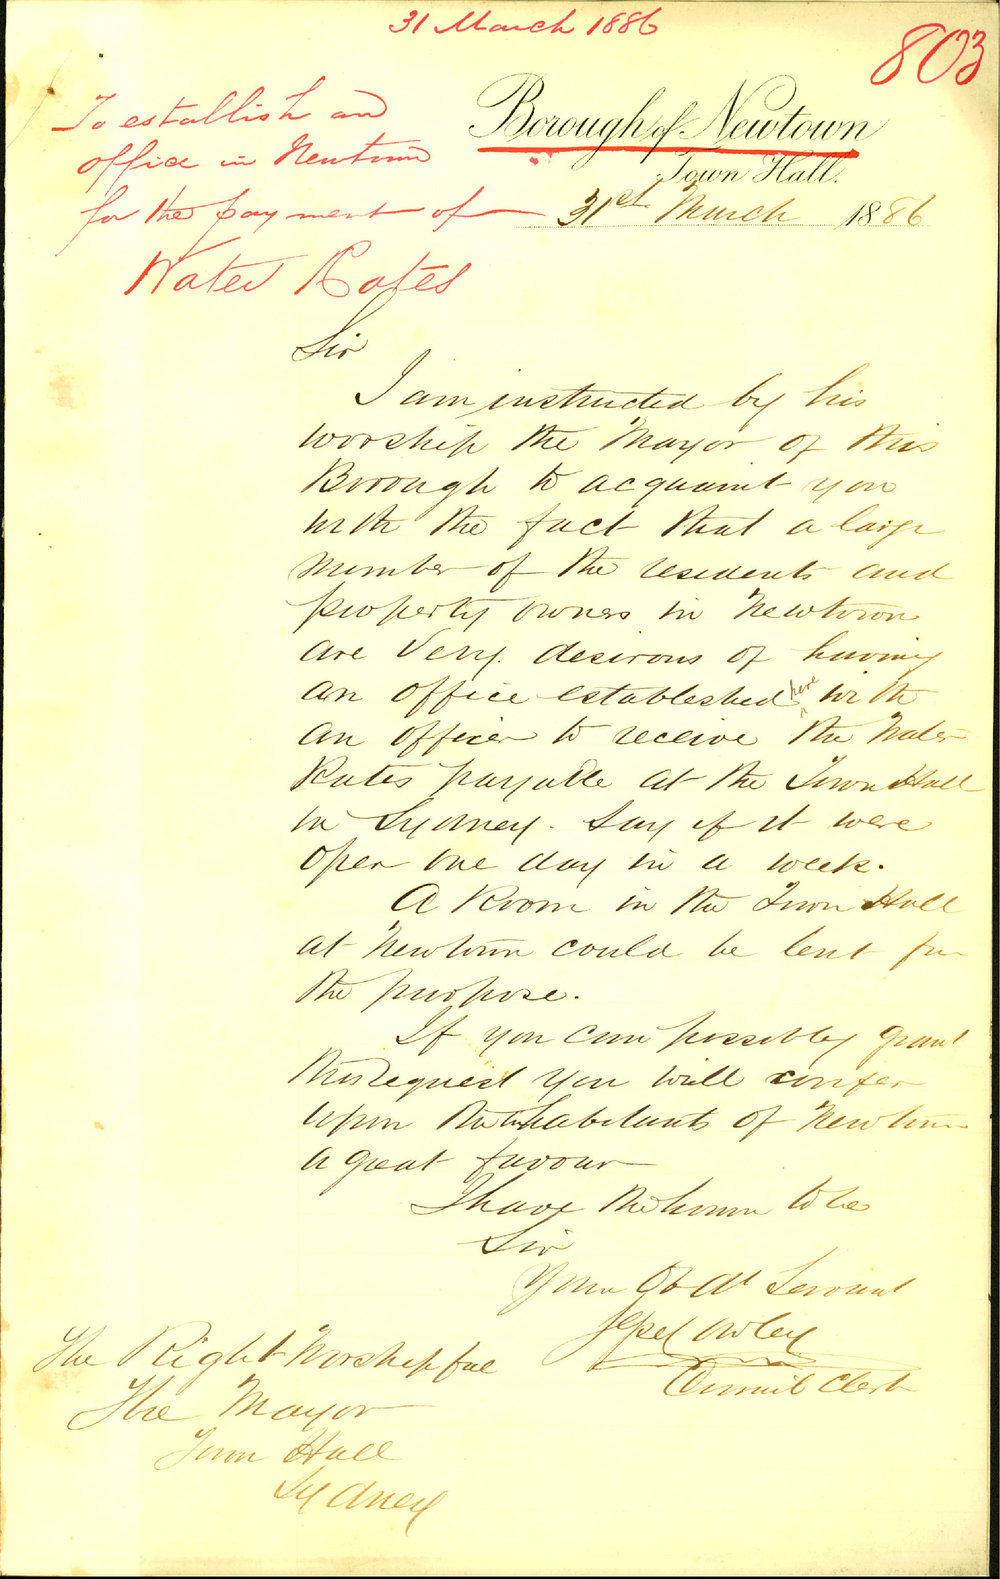 31 March 1886
803
To establish an
office in Newtown
for the payment of
Water Rates
Borough of Newtown
Town Hall.
31st March 1886
Sir
I am instructed by his
worship the Mayor of this
Borough to acquaint you
with the fact that a large
number of the residents and
property owners in Newtown
are very desirous of having
an office established here with
an officer to receive the Water
Rates payable at the Town Hall
in Sydney. Say if it were
open one day in a week.
A Room in the Town Hall
at Newtown could be lent for
the purpose.
If you can possibly grant
this request you will confer
upon the inhabitants of Newtown
a great favour
I have the honor to be
Sir
Your Obdt Servant
Cowley
Council Clerk
The Right Worshipful
The Mayor
Town Hall
Sydney